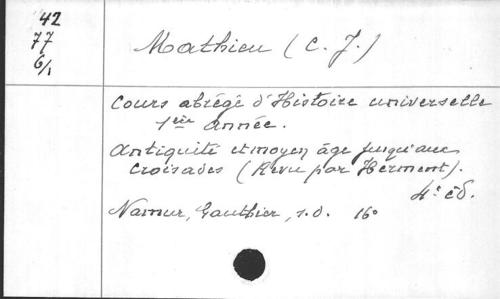 42
77
6/1
Mathieu (C. J.)
Cours abrégé d'Histoire universelle
1ère année.
Antiquité et moyen âge jusqu'aux
croisades (Revu par Herment).
4e éd.
Namur, Gauthier, s.d. 16°